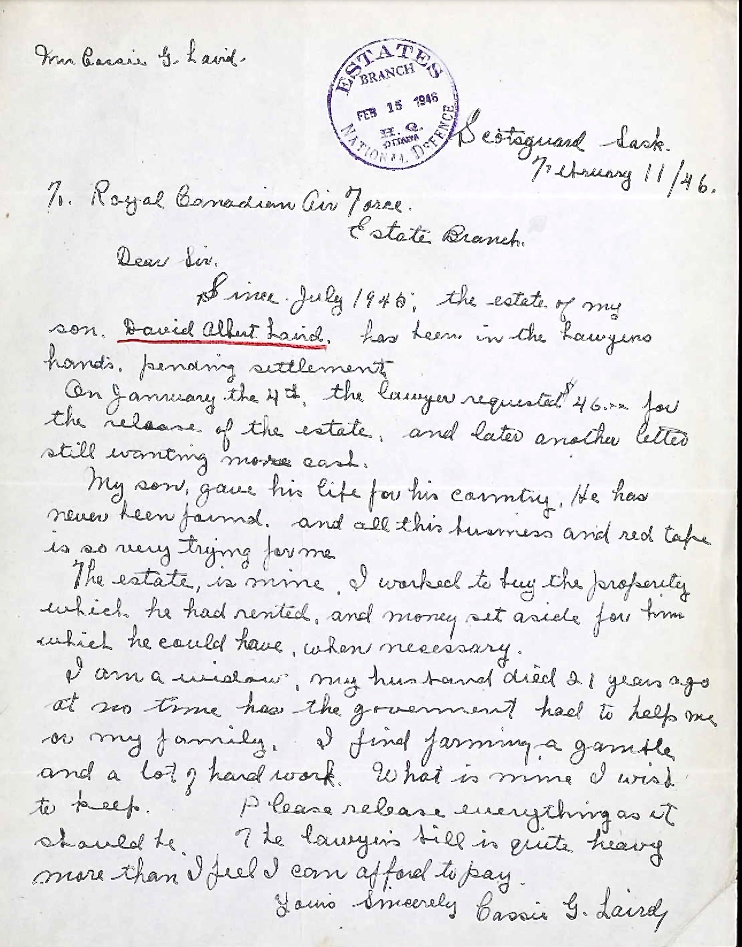 Mrs Cassie G. Laird.
ESTATES
BRANCH
FEB 15 1946
H.Q.
OTTAWA
NATIONAL DEFENCE
Scotsguard Sask.
February 11/46.
To. Royal Canadian Air Force.
Estate Branch.
Dear Sir.
Since July 1945, the estate of my
son, David Albert Laird, has been in the Lawyers
hands, pending settlement
On January the 4th, the lawyer requested $46.-- for
the release of the estate, and later another letter
still wanting more cash.
My son, gave his life for his country, He has
never been found. and all this business and red tape
is so very trying for me
The estate, is mine, I worked to buy the property
which he had rented, and money set aside for him
which he could have, when necessary.
I am a widow, my husband died 21 years ago
at no time has the goverment had to help me
or my family. I find farming a gamble
and a lot of hard work. What is mine I wish
to keep. Please release everything as it
should be. The lawyers bill is quite heavy
more than I feel I can afford to pay.
Yours Sincerely Cassie G. Laird,